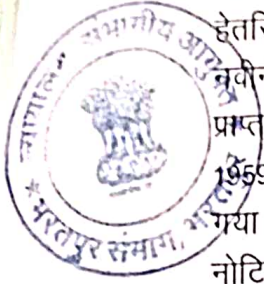 कार्यालय संभागीय आयुक्त
भरतपुर संभाग, भरतपुर
हेतसि
नवीन
प्राप्त
1959
गया
नोटि